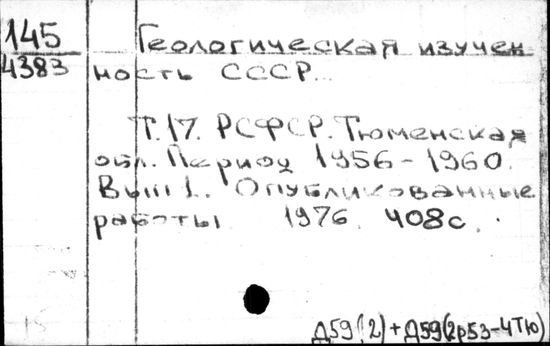 145
4383
Геологическая изучен
ность СССР.
Т.17. РСФСР. Тюменская
обл. Период 1956-1960.
Вып 1. Опубликованные
работы 1976. 408с.
Д59(2)+Д59(2р53-4Тю)
15